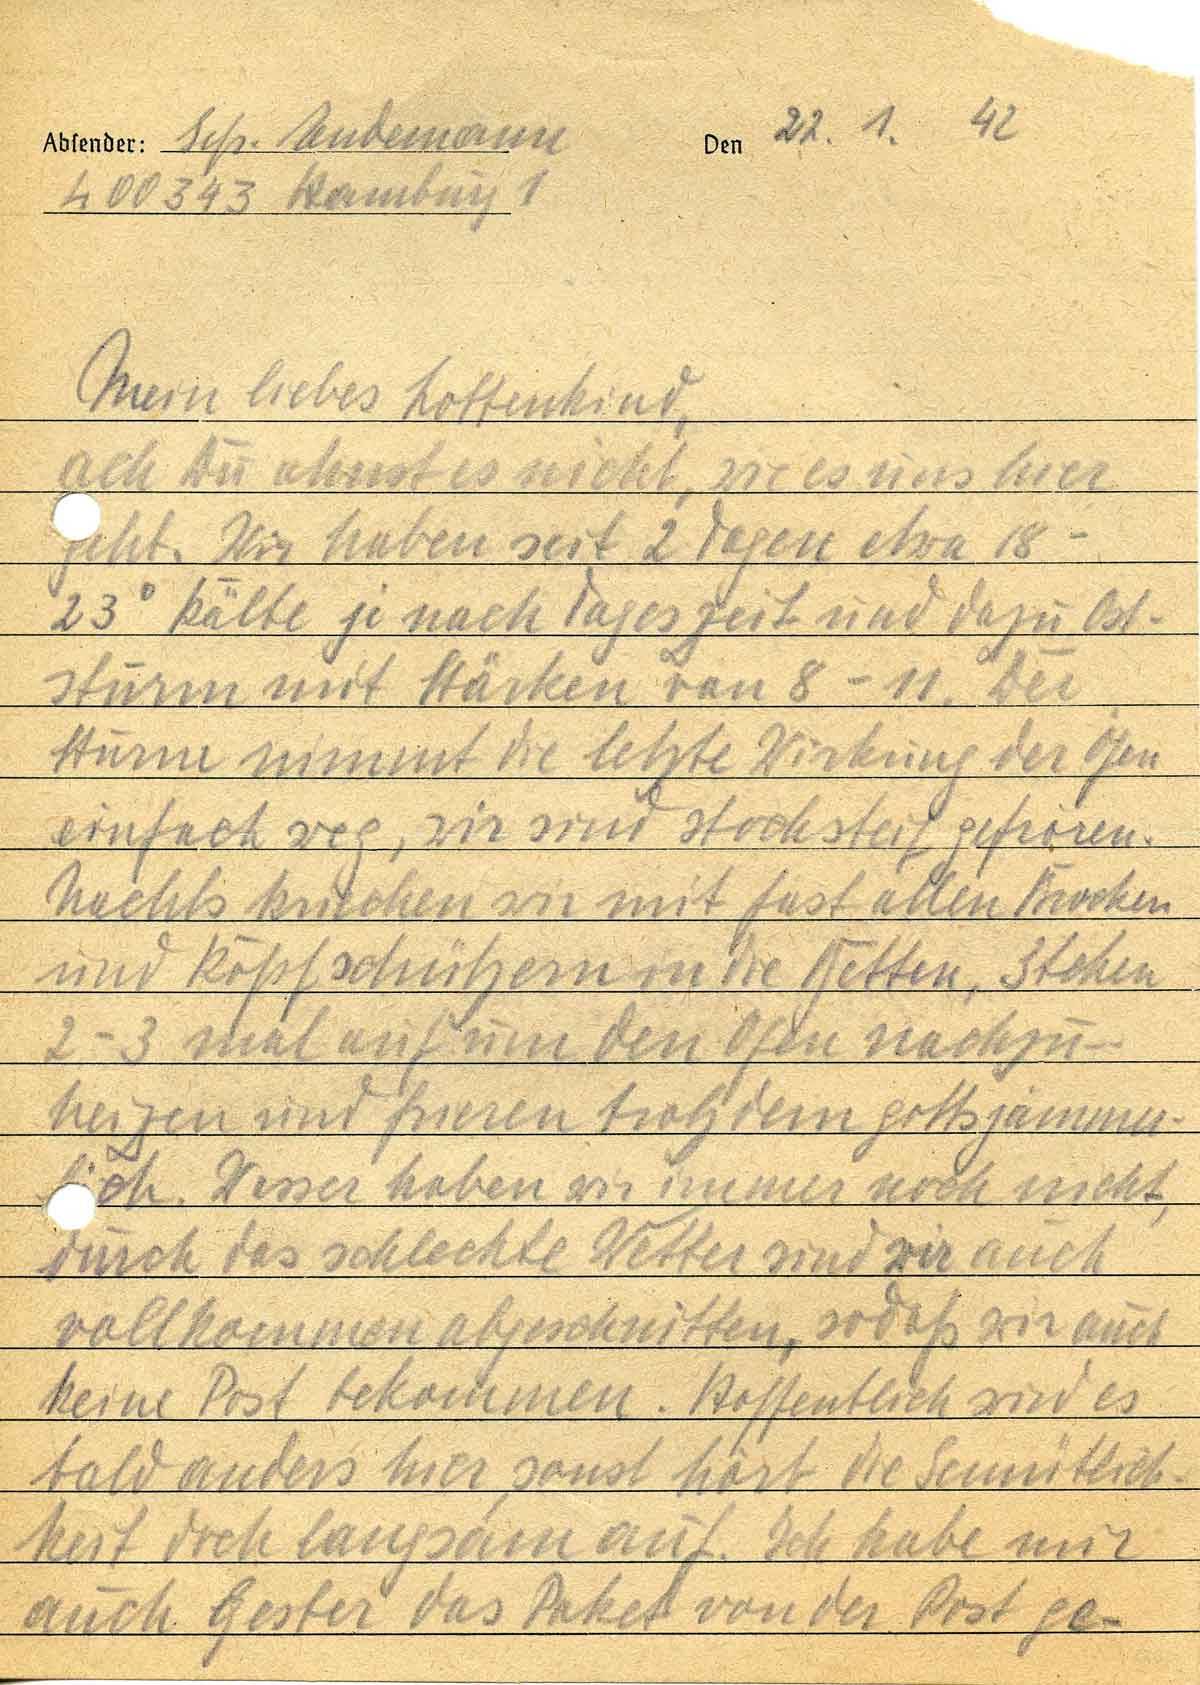 Absender: Gefr. Lindemann Den 22. 1. 42
L 00343 Hamburg 1
Mein liebes Lottenkind,
ach Du ahnst es nicht, wie es uns hier
geht. Wir haben seit 2 Tagen etwa 18 -
23° Kälte je nach Tageszeit und dazu Ost-
sturm mit Stärken von 8 - 11. Der
Sturm nimmt die letzte Wirkung der Öfen
einfach weg, wir sind stocksteif gefroren.
Nachts kriechen wir mit fast allen Brocken
und Kopfschützern in die Betten, stehen
2 - 3 mal auf um den Ofen nachzu-
heizen und frieren trotzdem gottsjämmer-
lich. Wasser haben wir immer noch nicht,
durch das schlechte Wetter sind wir auch
vollkommen abgeschnitten, sodaß wir auch
keine Post bekommen. Hoffentlich wird es
bald anders hier, sonst hört die Gemütlich-
keit doch langsam auf. Ich habe mir
auch Gester das Paket von der Post ge-